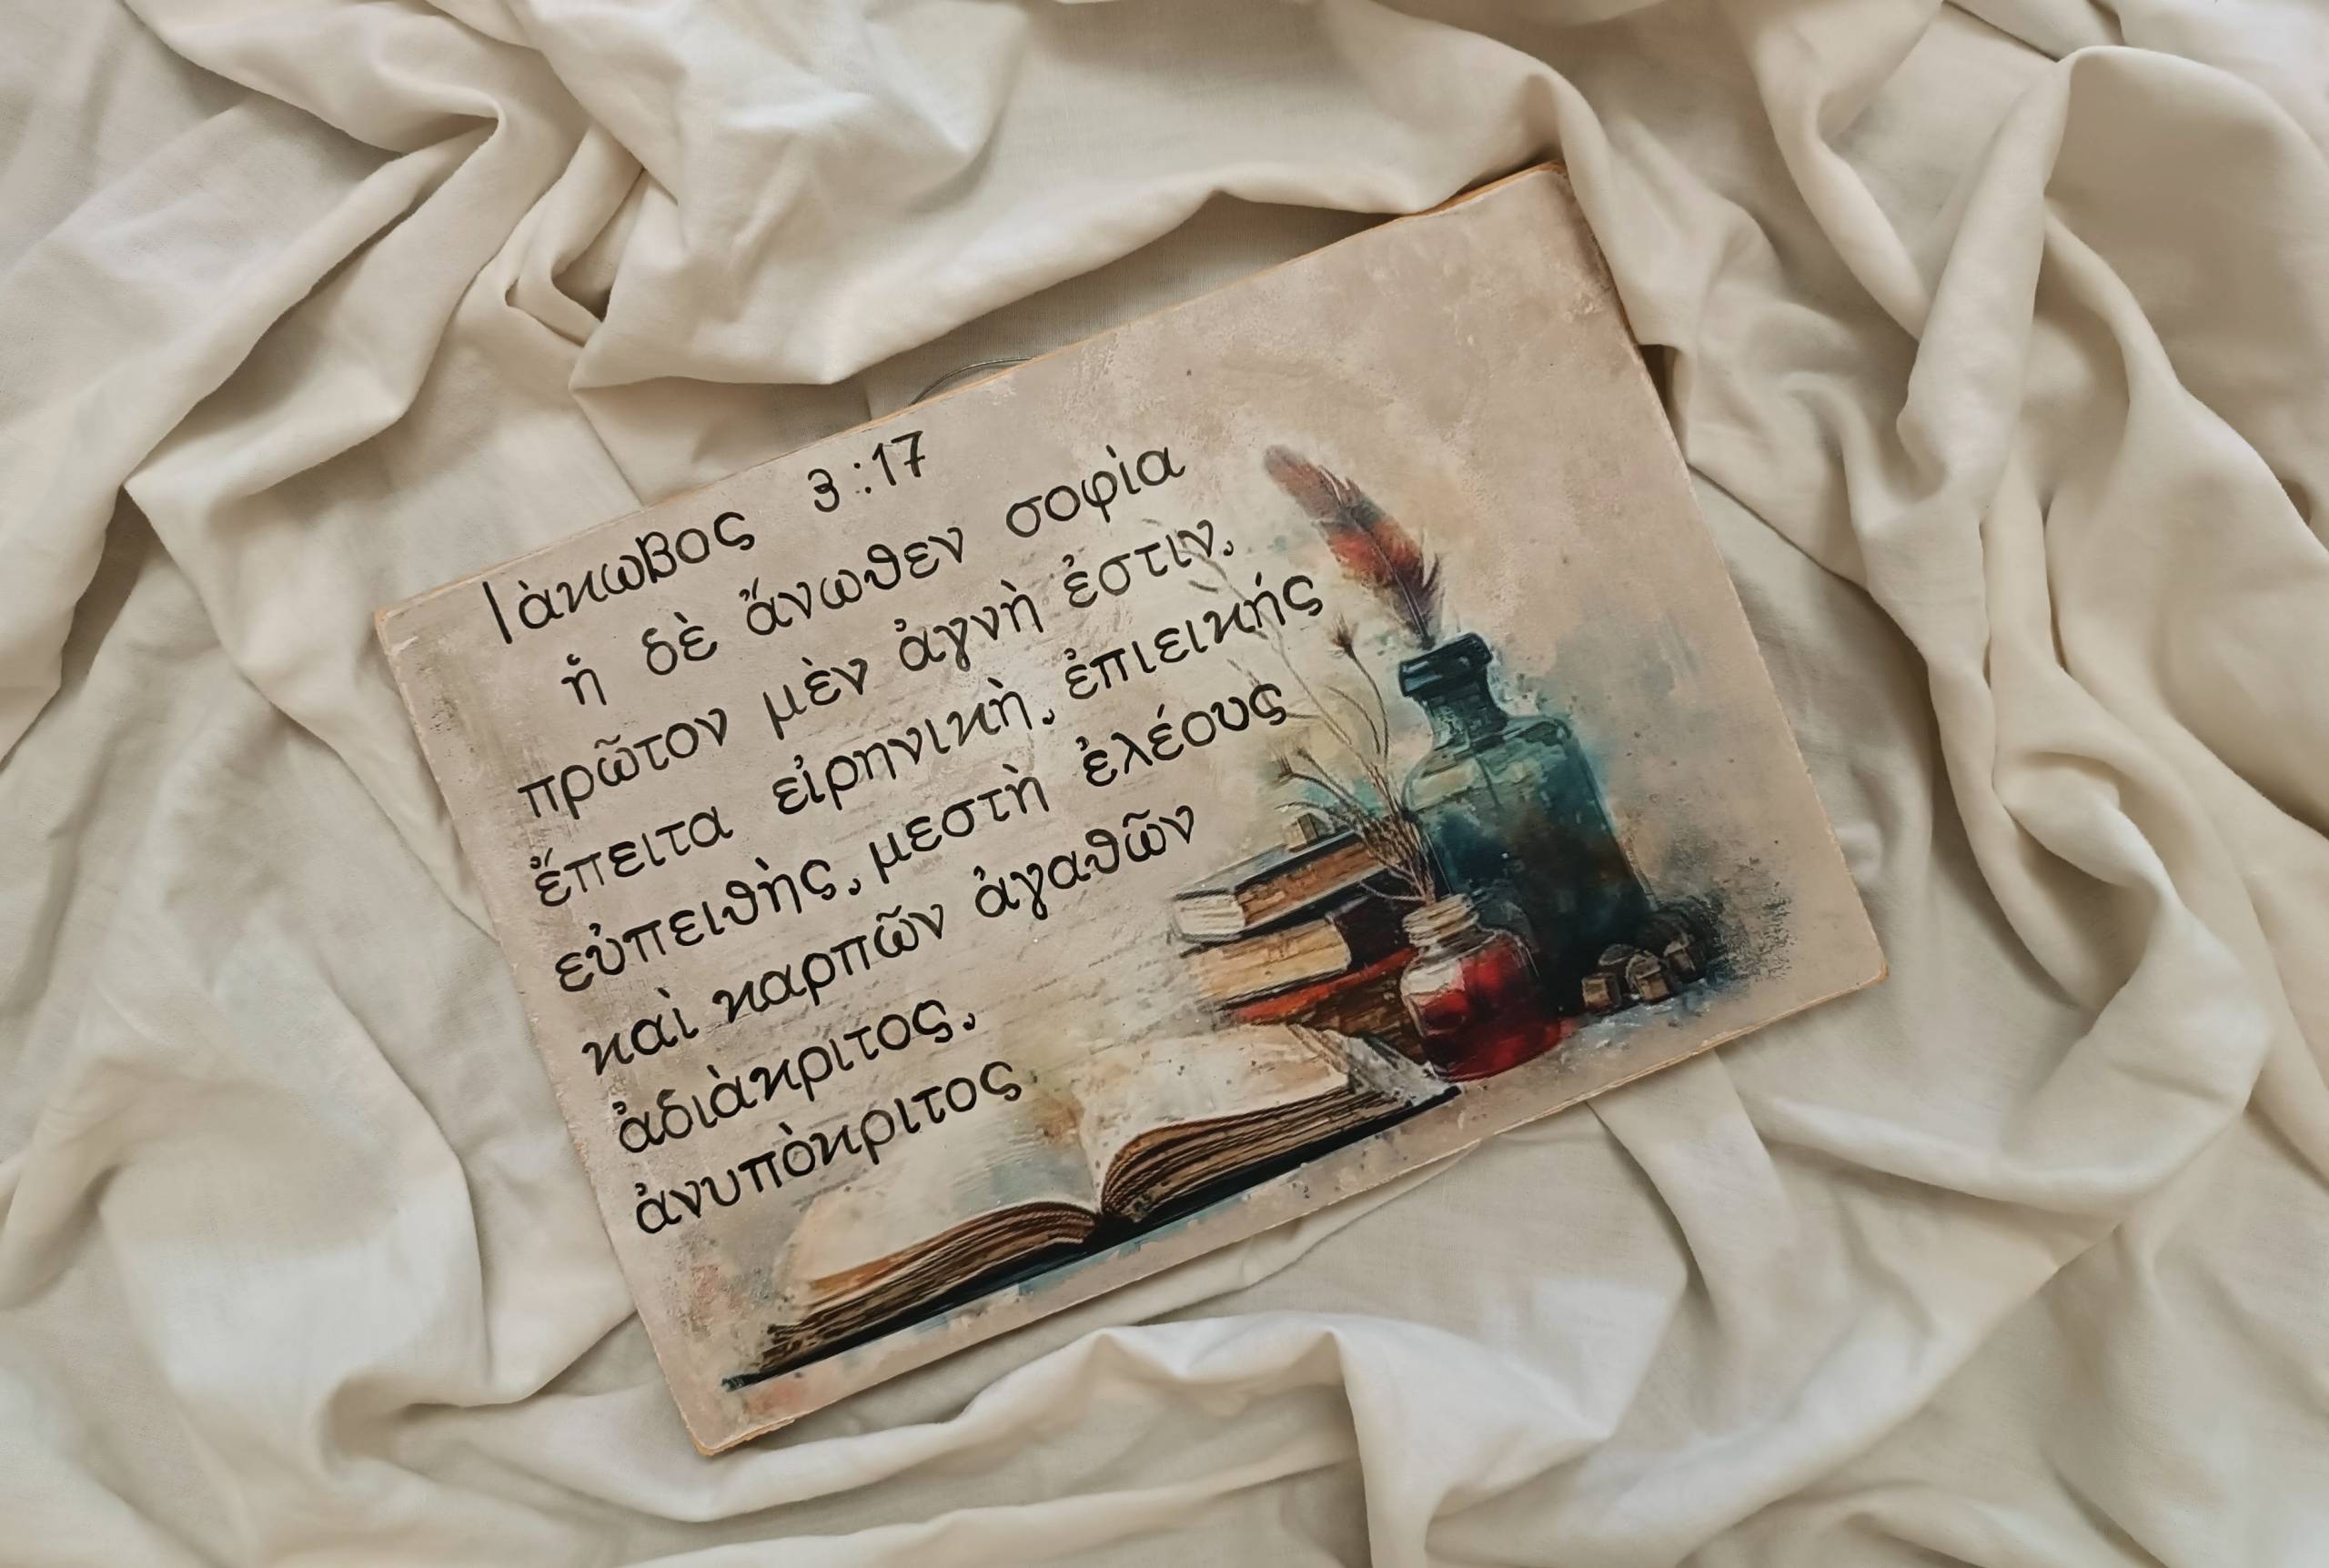 Ιὰκωβος 3:17
ἡ δὲ ἄνωθεν σοφὶα
πρῶτον μὲν ἁγνὴ ἐστιν,
ἔπειτα εἰρηνικὴ, ἐπιεικής
εὐπειθὴς, μεστὴ ἐλέους
καὶ καρπῶν ἀγαθῶν
ἀδιὰκριτος,
ἀνυπὸκριτος